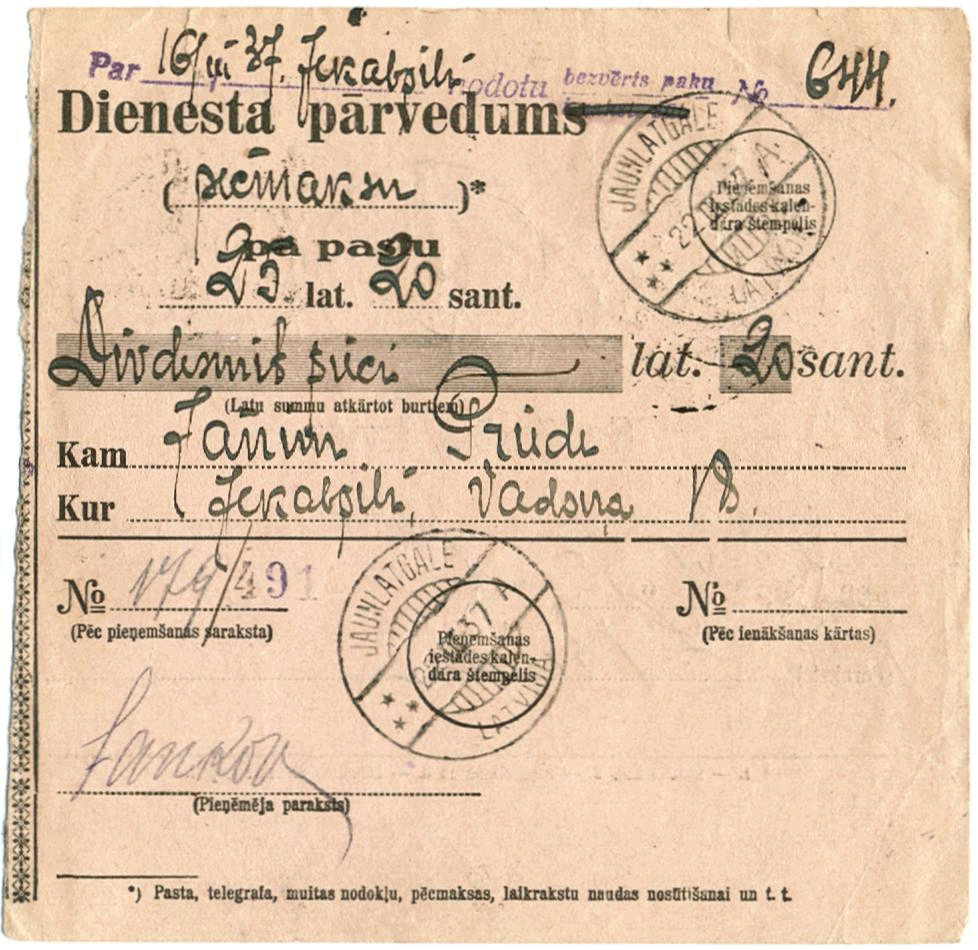 Par 16/III 37. Jekabpilī nodotu bezvērts paku No 644.
Dienesta pārvedums
(pēcmaksu)*
pa pastu
25 lat. 20 sant.
Divdesmit pieci lat. 20 sant.
(Latu summu atkārtot burtiem)
Kam Jānim
Kur Jekabpilī, Vadoņa 18.
No 179/491
No
(Pēc pieņemšanas saraksta)
(Pēc ienākšanas kārtas)
(Pieņēmēja paraksts)
*) Pasta, telegrafa, muitas nodokļu, pēcmaksas, laikrakstu naudas nosūtīšanai un t. t.
JAUNLATGALE
LATVIJA
Pieņemšanas
iestādes kalen-
dāra štempelis
JAUNLATGALE
37 A
LATVIJA
Pieņemšanas
iestādes kalen-
dāra štempelis